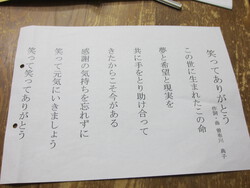 笑ってありがとう
作詞・曲
この世に生まれたこの命
夢と希望と現実を
共に手をとり助け合って
きたからこそ今がある
感謝の気持ちを忘れずに
笑って元気にいきましょう
笑って笑ってありがとう